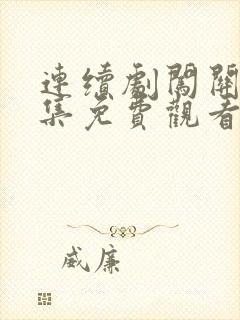 連續劇闖關
集免費觀看
威廉